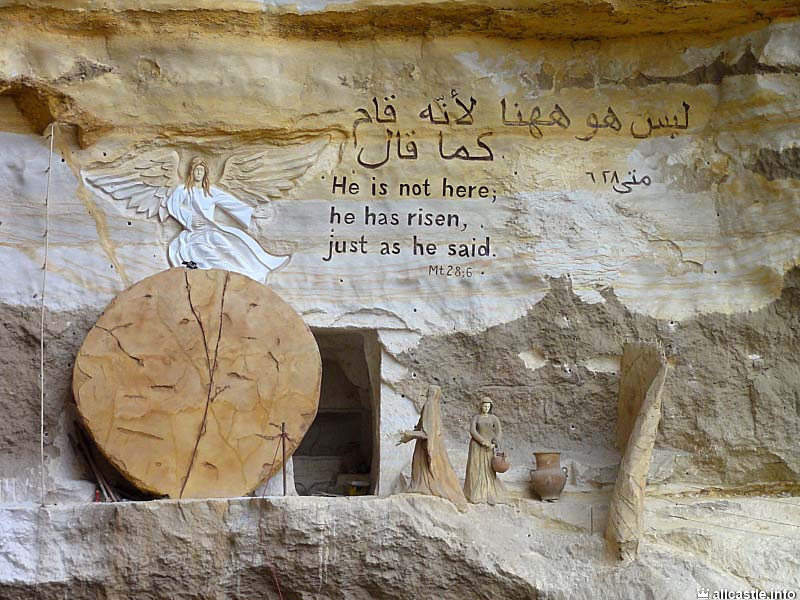 ليس هو ههنا لأنه قام
كما قال
متى ٢٨ ٦
He is not here;
he has risen,
just as he said.
Mt 28:6
allcastle.info